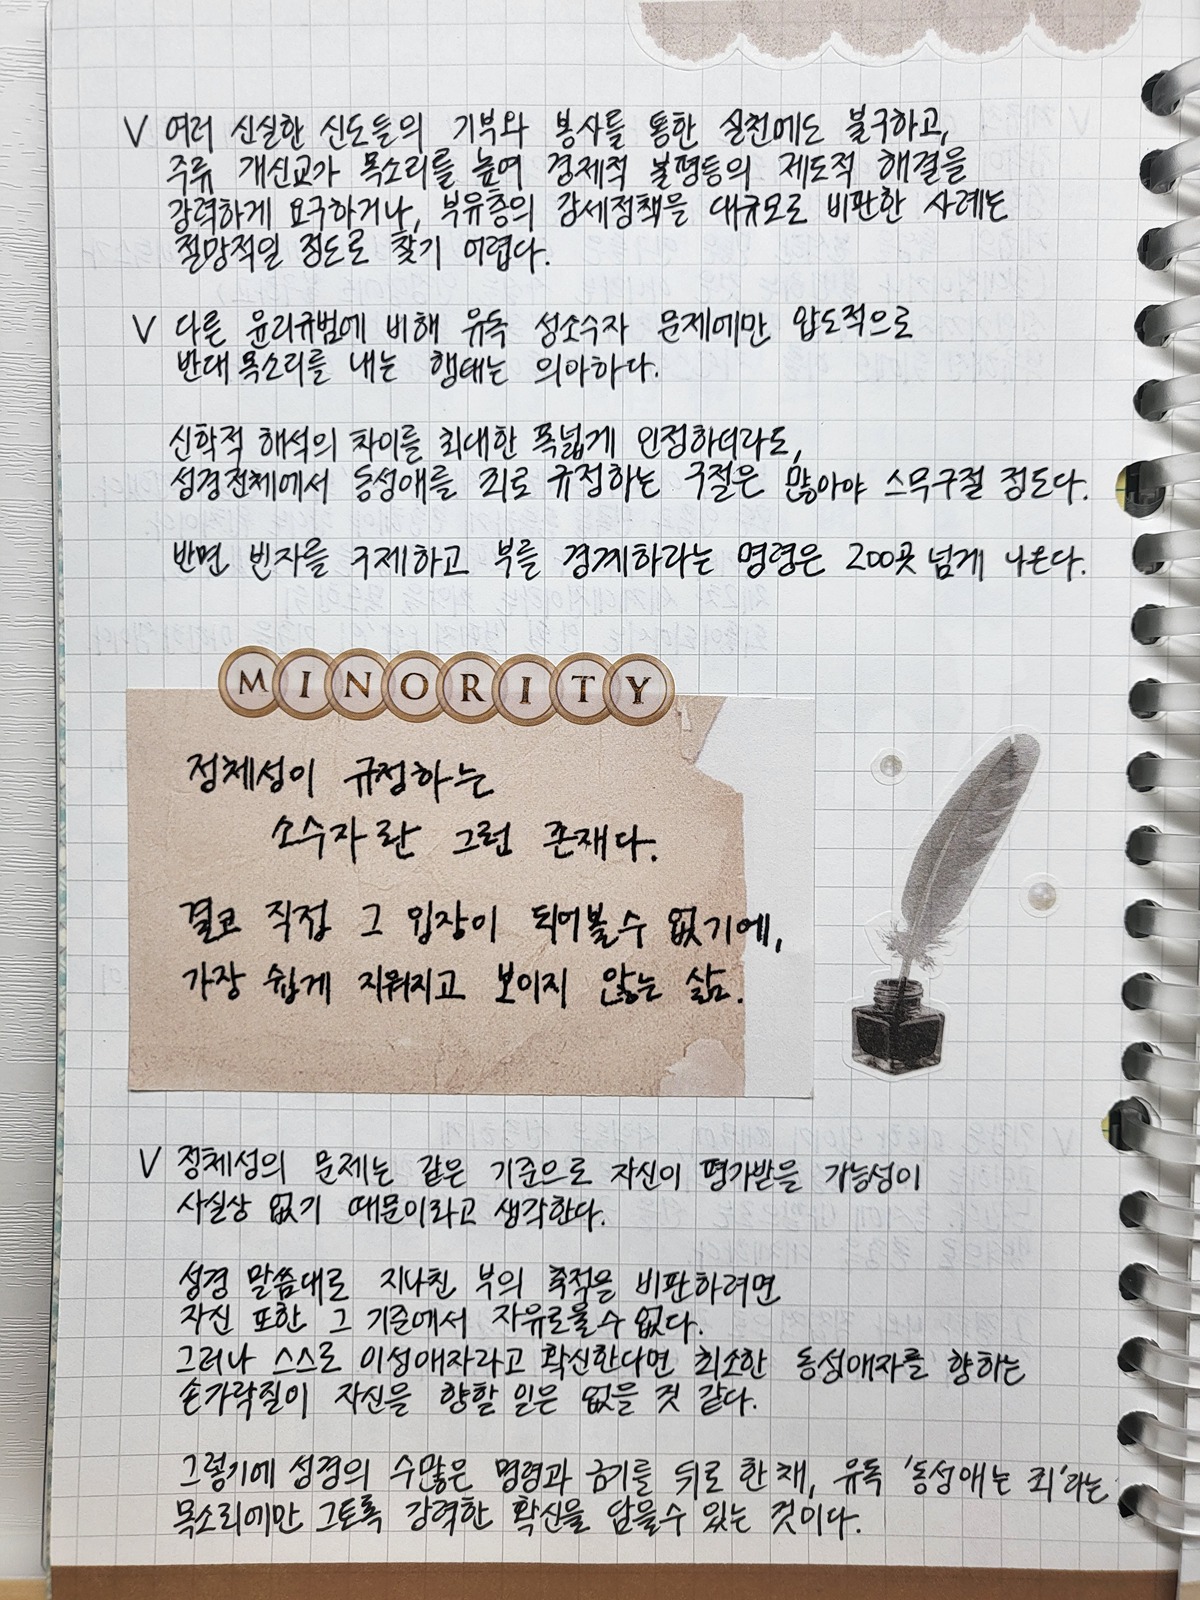 V 여러 신실한 신도들의 기부와 봉사를 통한 실천에도 불구하고,
주류 개신교가 목소리를 높여 경제적 불평등의 제도적 해결을
강력하게 요구하거나, 부유층의 감세정책을 대규모로 비판한 사례는
절망적일 정도로 찾기 어렵다.
V 다른 윤리규범에 비해 유독 성소수자 문제에만 압도적으로
반대 목소리를 내는 행태는 의아하다.
신학적 해석의 차이를 최대한 폭넓게 인정하더라도,
성경전체에서 동성애를 죄로 규정하는 구절은 많아야 스무구절 정도다.
반면 빈자를 구제하고 부를 경계하라는 명령은 200곳 넘게 나온다.
MINORITY
정체성이 규정하는
소수자란 그런 존재다.
결코 직접 그 입장이 되어볼 수 없기에,
가장 쉽게 지워지고 보이지 않는 삶.
V 정체성의 문제는 같은 기준으로 자신이 평가받을 가능성이
사실상 없기 때문이라고 생각한다.
성경 말씀대로 지나친 부의 축적을 비판하려면
자신 또한 그 기준에서 자유로울 수 없다.
그러나 스스로 이성애자라고 확신한다면 최소한 동성애자를 향하는
손가락질이 자신을 향할 일은 없을 것 같다.
그렇기에 성경의 수많은 명령과 금기를 뒤로 한 채, 유독 '동성애는 죄'라는
목소리에만 그토록 강력한 확신을 담을 수 있는 것이다.